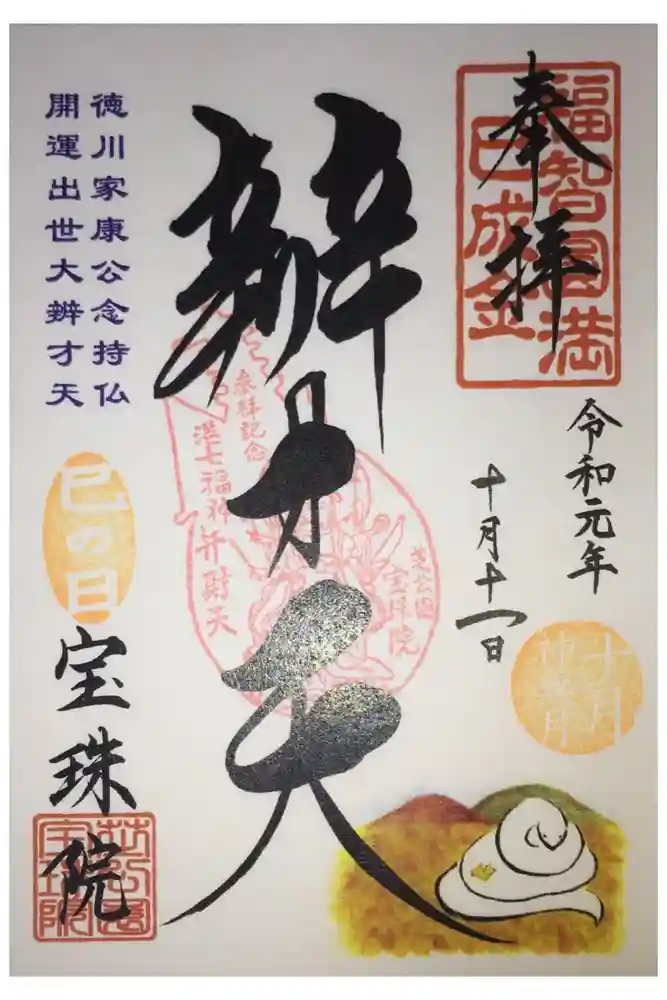 奉拝
福智圓満
巳成金
令和元年
十月十一日
十月
神無月
辨才天
参拝記念
港七福神弁財天
芝公園
宝珠院
徳川家康公念持仏
開運出世大辨才天
巳の日
宝珠院
芝公園
宝珠院